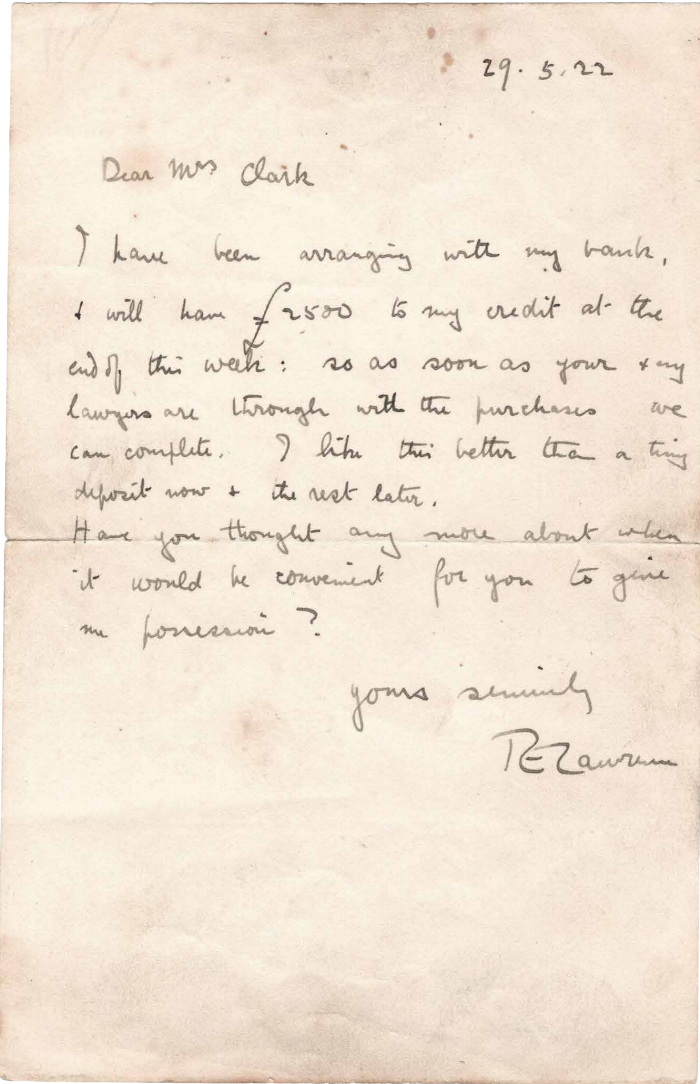 29.5.22
Dear Mrs Clark
I have been arranging with my bank,
& will have £2500 to my credit at the
end of this week: so as soon as your & my
lawyers are through with the purchases we
can complete. I like this better than a tiny
deposit now & the rest later.
Have you thought any more about when
it would be convenient for you to give
me possession?
Yours sincerely
TE Lawrence